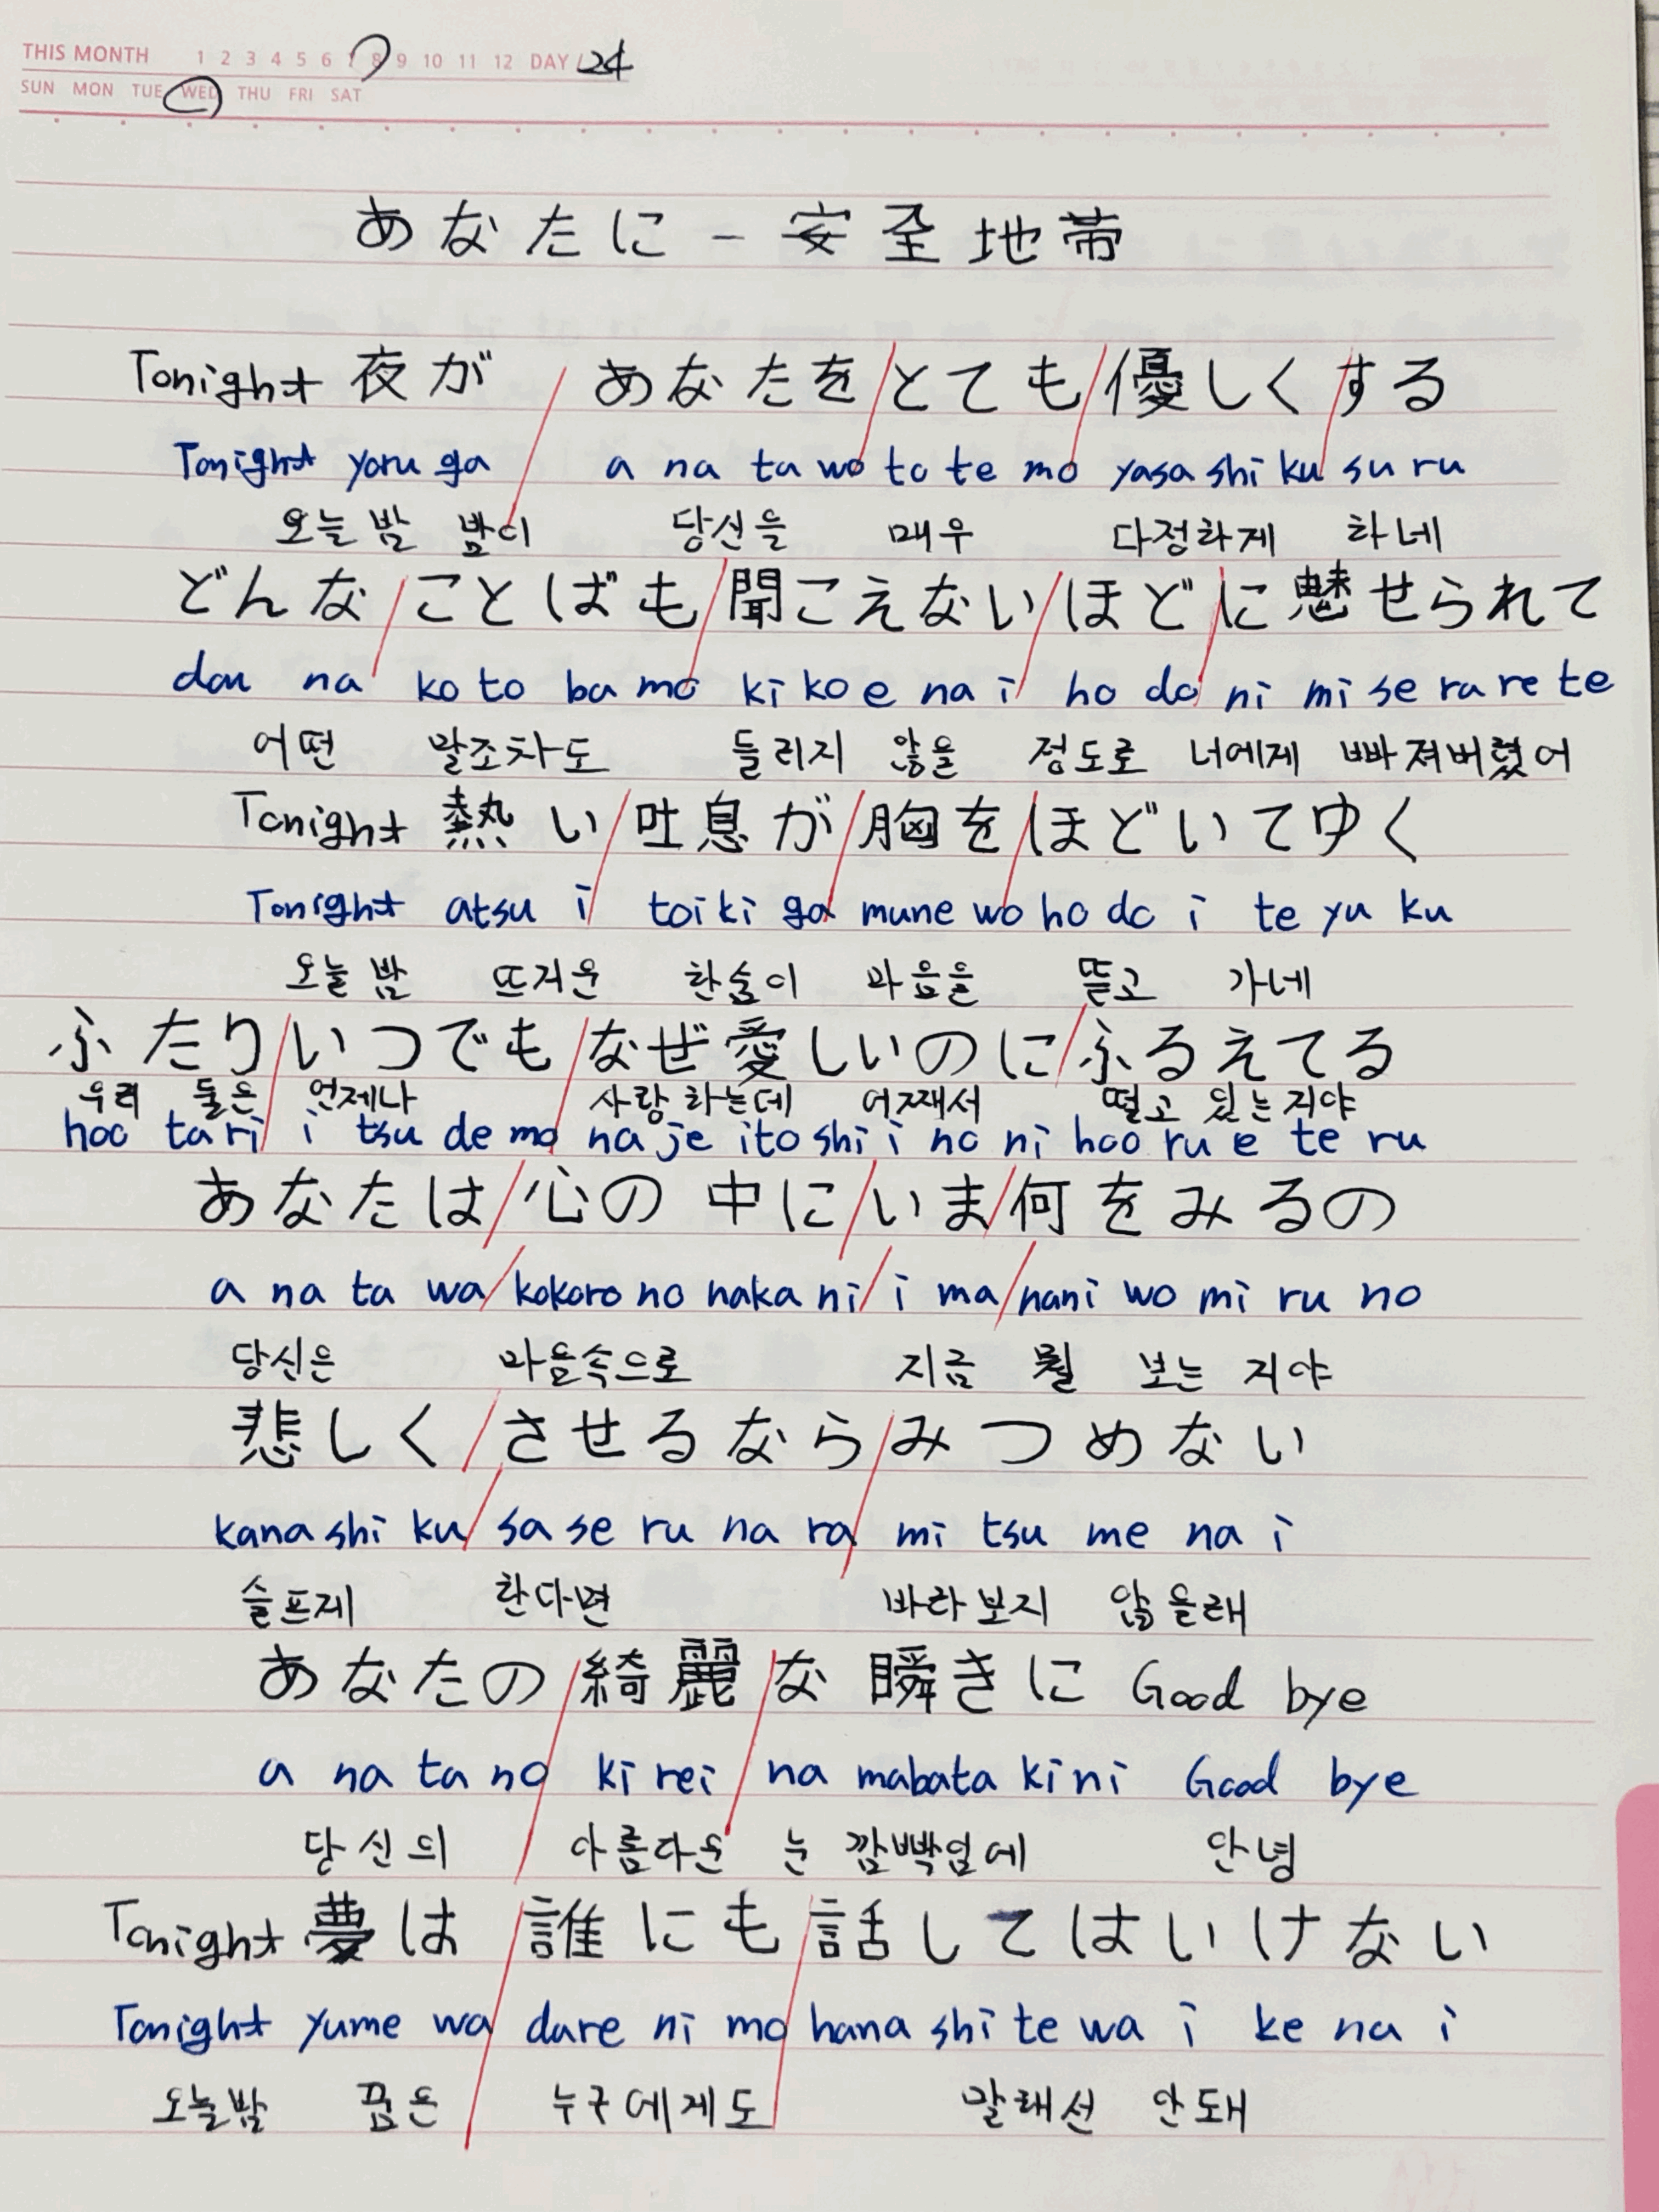 THIS MONTH 1 2 3 4 5 6 7 8 9 10 11 12 DAY / 24
SUN MON TUE WED THU FRI SAT
あなたに - 安全地帯
Tonight 夜が / あなたを / とても / 優しく / する
Tonight yoru ga a na ta wo to te mo yasa shi ku su ru
오늘 밤 밤이 당신을 매우 다정하게 하네
どんな / ことばも / 聞こえない / ほど / に 魅せられて
don na ko to ba mo ki ko e na i ho do ni mi se ra re te
어떤 말조차도 들리지 않을 정도로 너에게 빠져버렸어
Tonight 熱い / 吐息が / 胸を / ほどいてゆく
Tonight atsu i toi ki ga mune wo ho do i te yu ku
오늘 밤 뜨거운 한숨이 마음을 뜯고 가네
ふたり / いつでも / なぜ愛しいのに / ふるえてる
우리 둘은 언제나 사랑하는데 어째서 떨고 있는지야
hoo ta ri i tsu de mo na je ito shi i no ni hoo ru e te ru
あなたは / 心の中に / いま / 何をみるの
a na ta wa / kokoro no naka ni / i ma / nani wo mi ru no
당신은 마음속으로 지금 뭘 보는 지야
悲しく / させるなら / みつめない
kana shi ku / sa se ru na ra mi tsu me na i
슬프게 한다면 바라보지 않을래
あなたの / 綺麗 / な 瞬きに Good bye
a na ta no ki rei na mabata ki ni Good bye
당신의 아름다운 눈 깜빡임에 안녕
Tonight 夢は / 誰にも / 話してはいけない
Tonight yume wa dare ni mo hana shi te wa i ke na i
오늘밤 꿈은 누구에게도 말해선 안돼